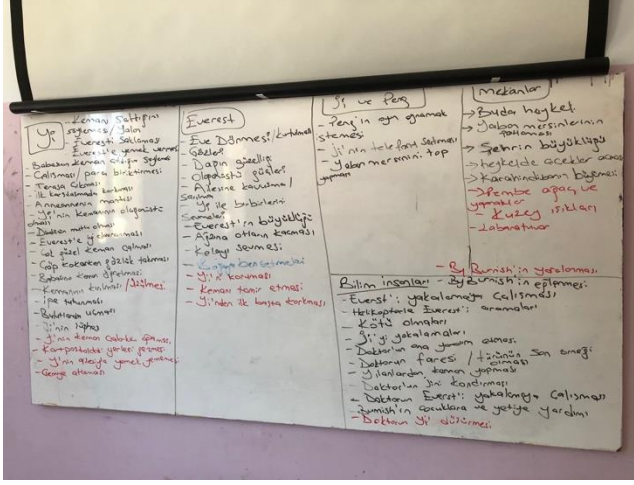 Yi
- Kemanı Sattığını
söylemesi/Yalan
- Everesti Saklaması
- Everest'e yemek vermesi
- Babasının kemanı olduğunu söylemesi
- Çalışması/para biriktirmesi
- Terasa Çıkması
- ilk karşılaşmada korkması
- Annesinin mantısı
- Yi'nin kemanının olağanüstü
olması
- Everest'e
- Çok güzel keman çalması
- Babasına
- Kemanının kırılması/Üzülmesi
- ipe tutunması
- Bulutların uçması
- Yi'nin
- Yi'nin keman
- Kartpostaldaki yerleri gezmesi
- Yi'nin ailesiyle yemek yemesi
Everest
- Eve Dönmesi/kurtulması
- Gözleri
- Dağın güzelliği
- Olağanüstü güçleri
- Ailesine kavuşma/
Sarılma
- Yi ile birbirlerini
Sevmeleri
- Everest'in büyüklüğü
- Ağzına otların kaçması
- Kolayı sevmesi
- Yi'yi koruması
- Kemanı tamir etmesi
- Yi'nden ilk başta korkması
Ji ve Peng
- Peng'in oyun oynamak
istemesi
- Ji'nin telefonu
- Yaban mersinini top
yapması
Mekanlar
→ Buda heykeli
→ Yaban mersinlerinin
patlaması
→ Şehrin büyüklüğü
→ heykelde çiçekler açması
→ Karahindibanın büyümesi
→ Pembe ağaç ve
yapraklar
- Kuzey ışıkları
- Laboratuvar
- By Burnish'in yaralanması
Bilim insanları
- By Burnish'in eğilmesi
- Everst'i yakalamaya Çalışması
- Helikopterle Everest'i aramaları
- Kötü olmaları
- Ji'yi yakalamaları
- Doktor'un ona yardım etmesi
- Doktorun faresi / türünün son örneği
olması
- Yılanlardan kaman yapması
- Doktor'un Jini kandırması
- Doktorun Everst'i yakalamaya Çalışması
- Burnish'in çocuklara ve yetiye yardımı
- Doktorun Yi'